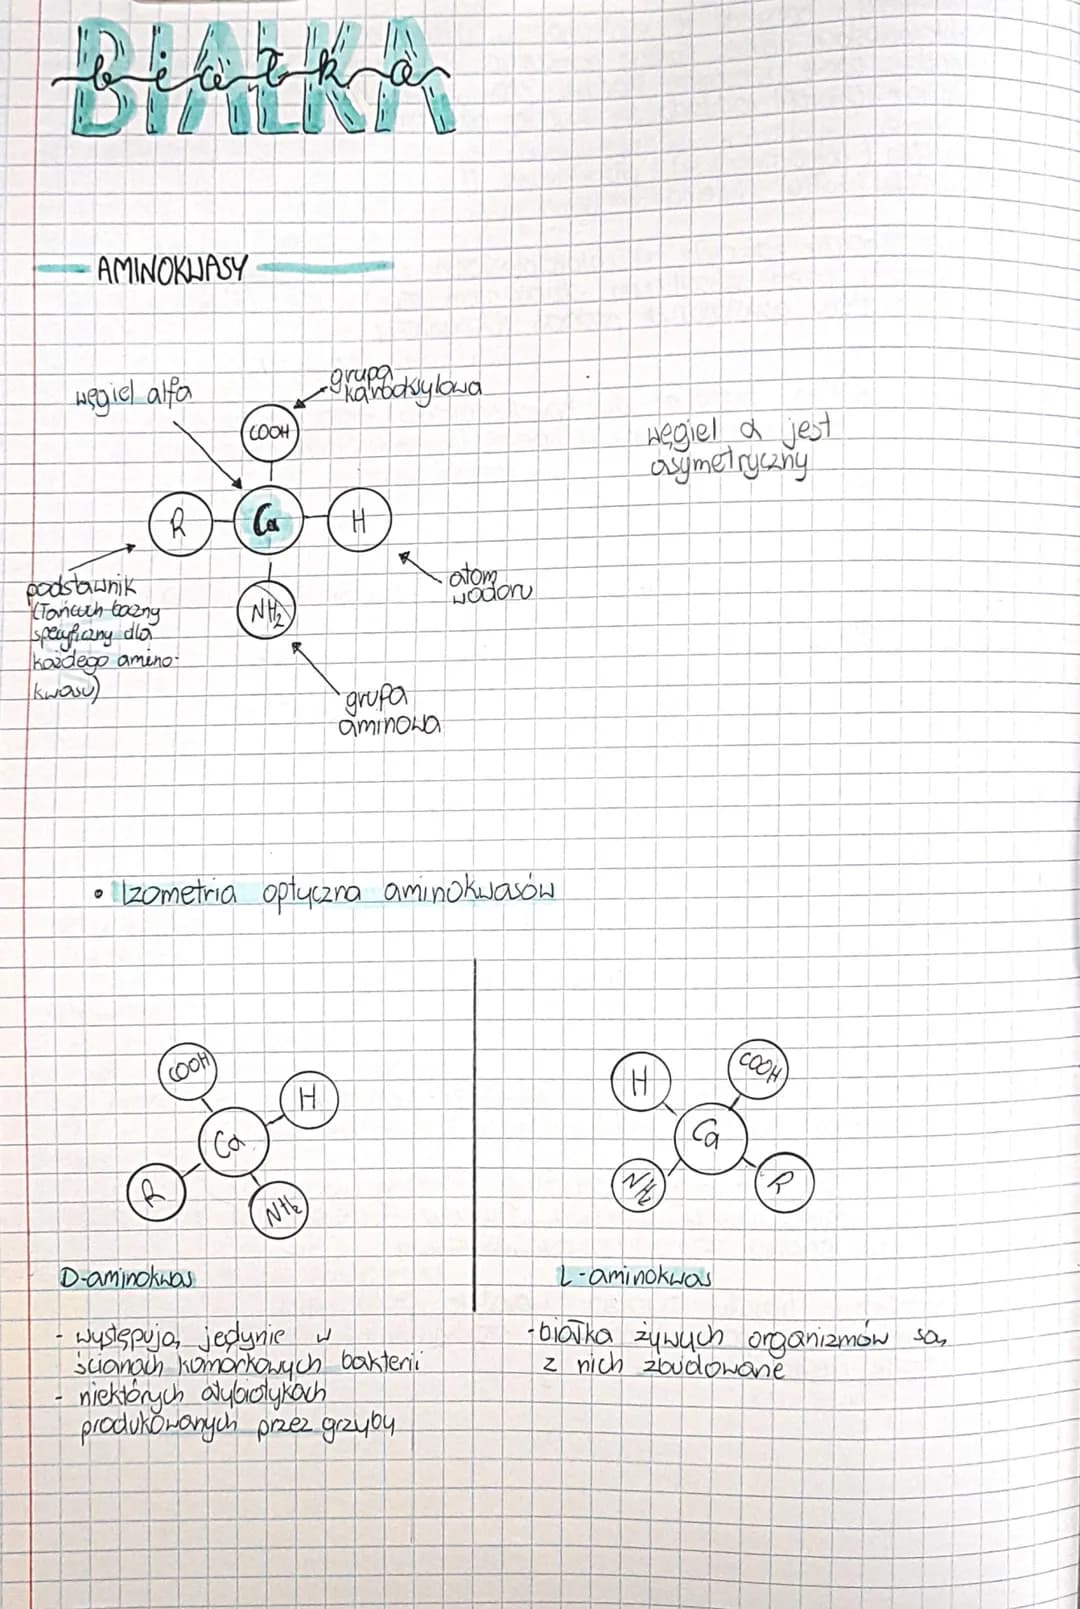 BIAŁKA
białka
AMINOKWASY
węgiel alfa
grupa
karboksylowa
COOH
węgiel α jest
asymetryczny
R
Cα
H
podstawnik
(łańcuch boczny
specyficzny dla
każdego amino-
kwasu)
atom
wodoru
NH₂
grupa
aminowa
• Izometria optyczna aminokwasów
COOH
H
Cα
R
NH₂
H
COOH
Cα
NH₂
R
D-aminokwas
L-aminokwas
- występują jedynie w
ścianach komórkowych bakterii
- niektórych atybiotykach
produkowanych przez grzyby
- białka żywych organizmów są
z nich zbudowane